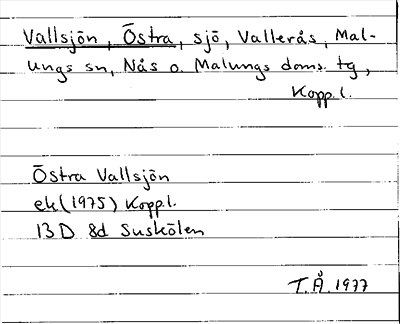 Vallsjön, Östra, sjö, Vallerås, Mal-
ungs sn, Nås o. Malungs doms. tg,
Kopp.l.
Östra Vallsjön
ek (1975) Kopp.l.
13 D 8d Suskölen
T.Å. 1977